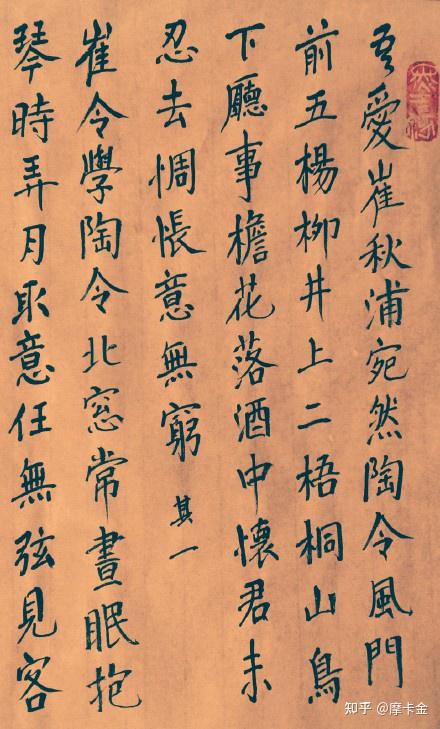 吾愛崔秋浦宛然陶令風門
前五楊柳井上二梧桐山鳥
下廳事檐花落酒中懷君未
忍去惆悵意無窮 其一
崔令學陶令北窓常晝眠抱
琴時弄月取意任無弦見客
知乎 @摩卡金